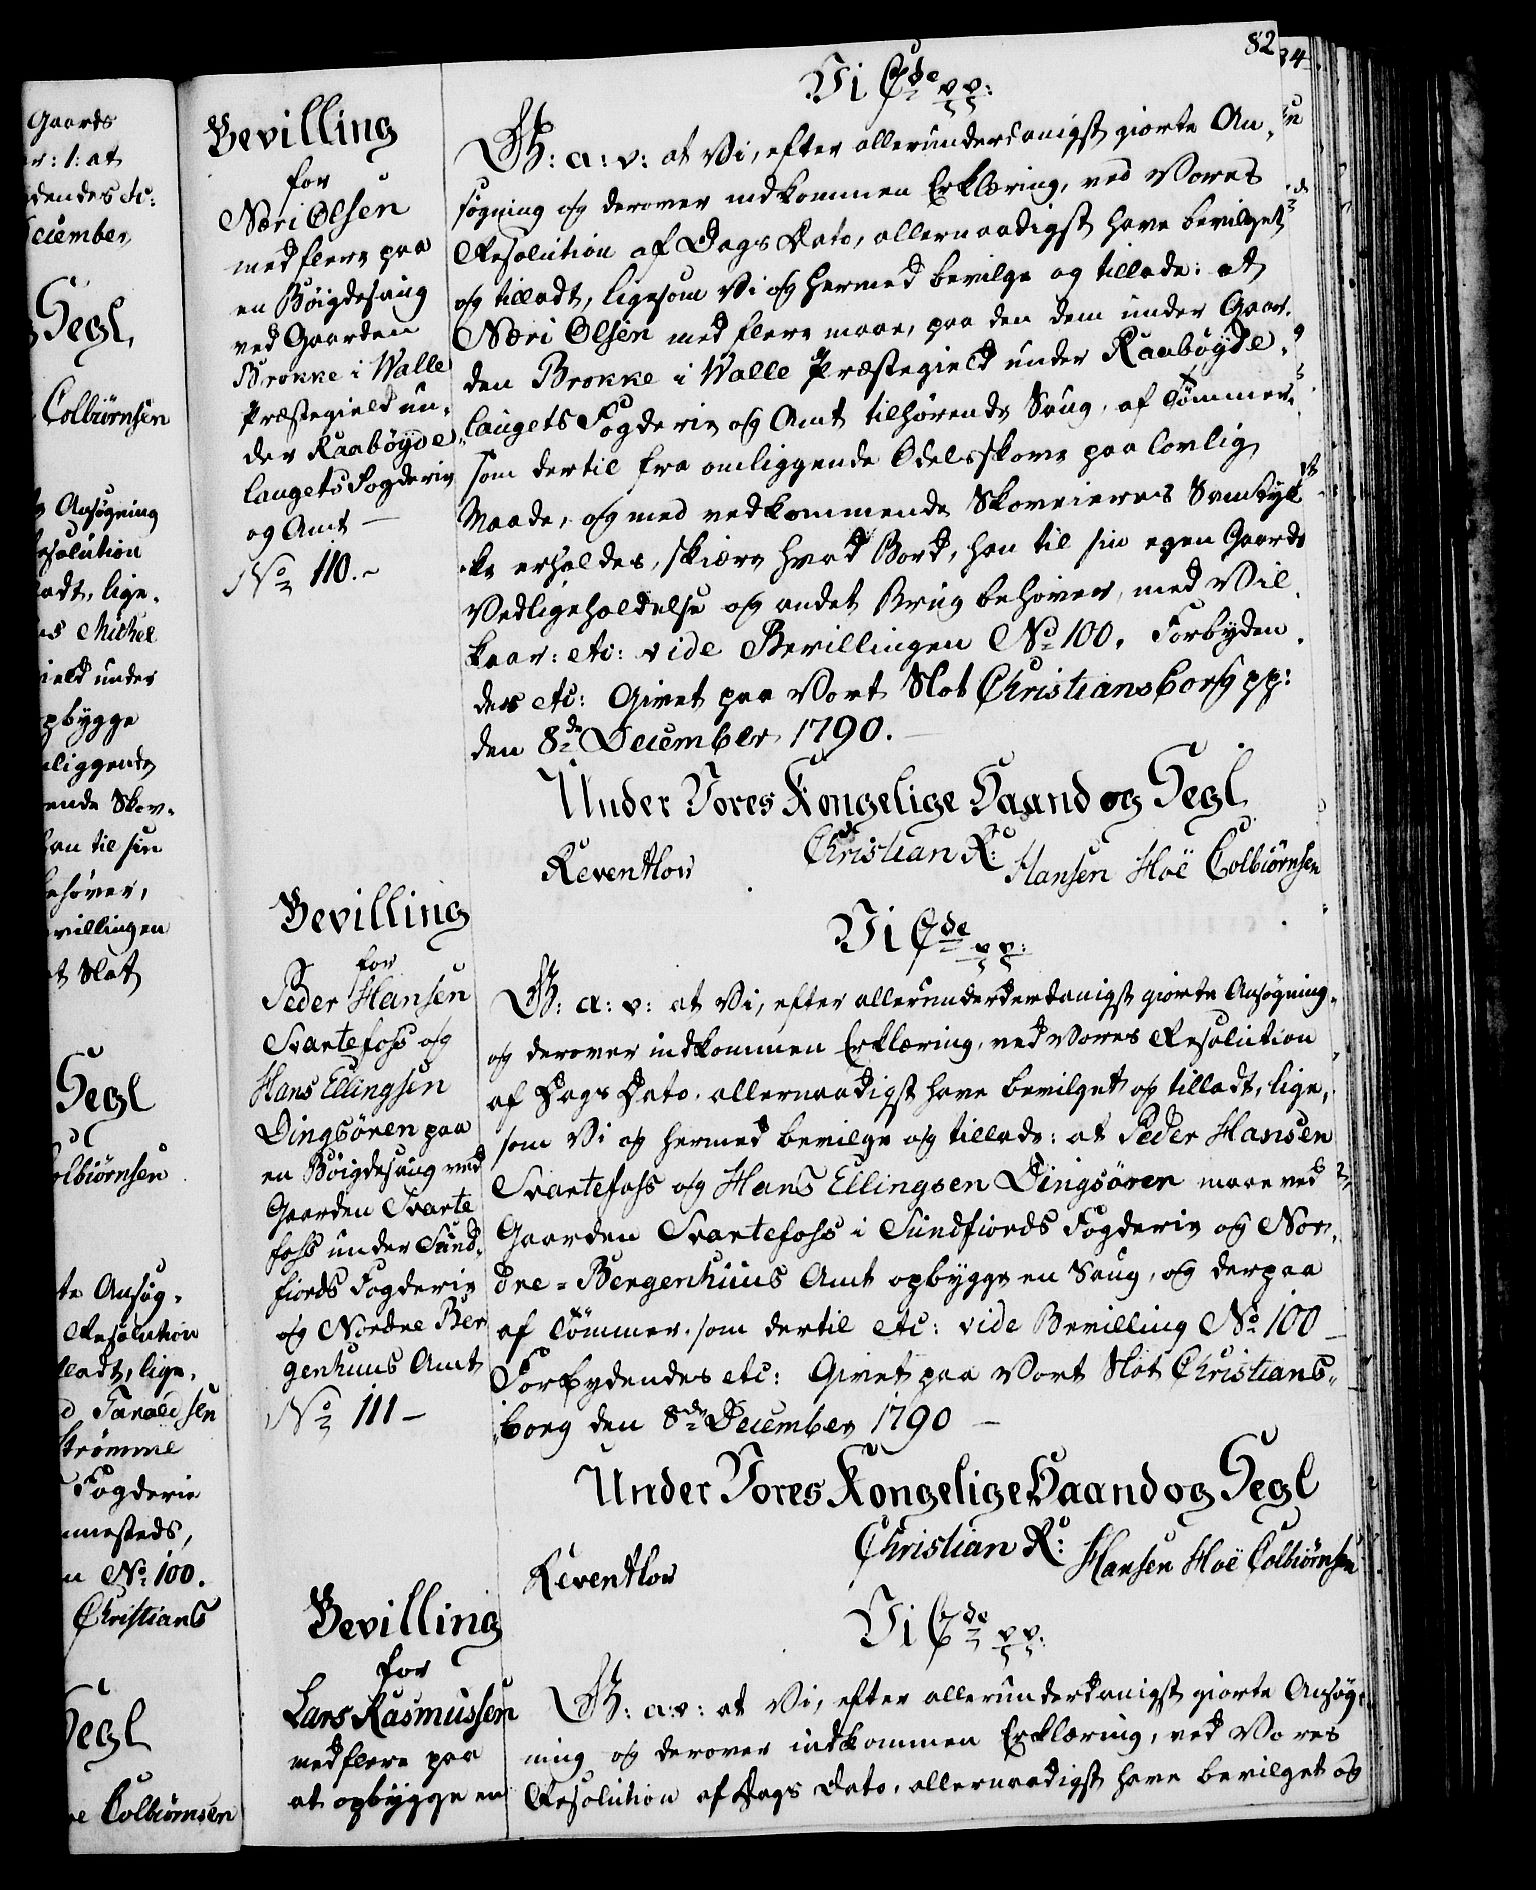 82
Gaards
r: 1: at
dendes etc:
ecember
Segl,
Colbiørnsen
Ansøgning
esolution
ladt, lige-
Michel
ield under
opbygge
liggende
ende Skov-
han til sin
behøver,
villingen
Slot
Segl
olbiørnsen
te Ansøg-
Resolution
lladt, lige-
Taraldsen
Strømme
Fogderie
No 100.
Christians
Segl
Colbiørnsen
Bevilling
for
Neri Olsen
med flere paa
en Böigdesaug
ved Gaarden
Brokke i Walle
Præstegield un-
der Raabøyde-
laugets Fogderie
og Amt —
No 110. -
Vi C 7de pp:
G: a: v: at Vi, efter allerunderdanigst giorte An-
søgning og derover indkommen Erklæring, ved Vores
Resolution af Dags Dato, allernaadigst have bevilget
og tilladt, ligesom Vi og hermed bevilge og tillade: at
Neri Olsen med flere maae, paa den dem under Gaar-
den Brokke i Walle Præstegield under Raabøyde-
laugets Fogderie og Amt tilhørende Saug, af Tømmer,
som dertil fra omliggende Odelsskove paa lovlig
Maade, og med vedkommende Skoveieres Samtyk-
ke erholdes, skiære hvad Bord, han til sin egen Gaards
Vedligeholdelse og andet Brug behøver, med Vil-
kaar: etc: vide Bevillingen No 100. Forbyden-
des etc: Givet paa Vort Slot Christiansborg pp:
den 8de December 1790. —
Under Vores Kongelige Haand og Segl
Christian R:
Reventlow Hansen Hoë Colbiørnsen
Bevilling
for
Peder Hansen
Svartefoss og
Hans Ellingsen
Dingsören paa
en Böigdesaug ved
Gaarden Svarte
foss under Sund-
fiords Fogderie
og Nordre Ber
genhuus Amt
No 111 —
Vi C 7de pp:
G: a: v: at Vi, efter allerunderderdanigst giorte Ansøgning
og derover indkommen Erklæring, ved Vores Resolution
af Dags Dato, allernaadigst have bevilget og tilladt, lige-
som Vi og hermed bevilge og tillade: at Peder Hansen
Svartefoss og Hans Ellingsen Dingsören maae ved
Gaarden Svartefoss i Sundfiords Fogderie og Nor-
dre-Bergenhuus Amt opbygge en Saug, og derpaa
af Tømmer, som dertil etc: vide Bevilling No 100 —
Forbydendes etc: Givet paa Vort Slot Christians-
borg den 8de December 1790 —
Under Vores Kongelige Haand og Segl
Christian R:
Reventlow Hansen Hoë Colbiørnsen
Bevilling
for
Lars Rasmussen
med flere paa
at opbygge en
Vi C 7de pp:
G: a: v: at Vi, efter allerunderdanigst giorte Ansøg-
ning og derover indkommen Erklæring, ved Vores
Resolution af Dags Dato, allernaadigst have bevilget og